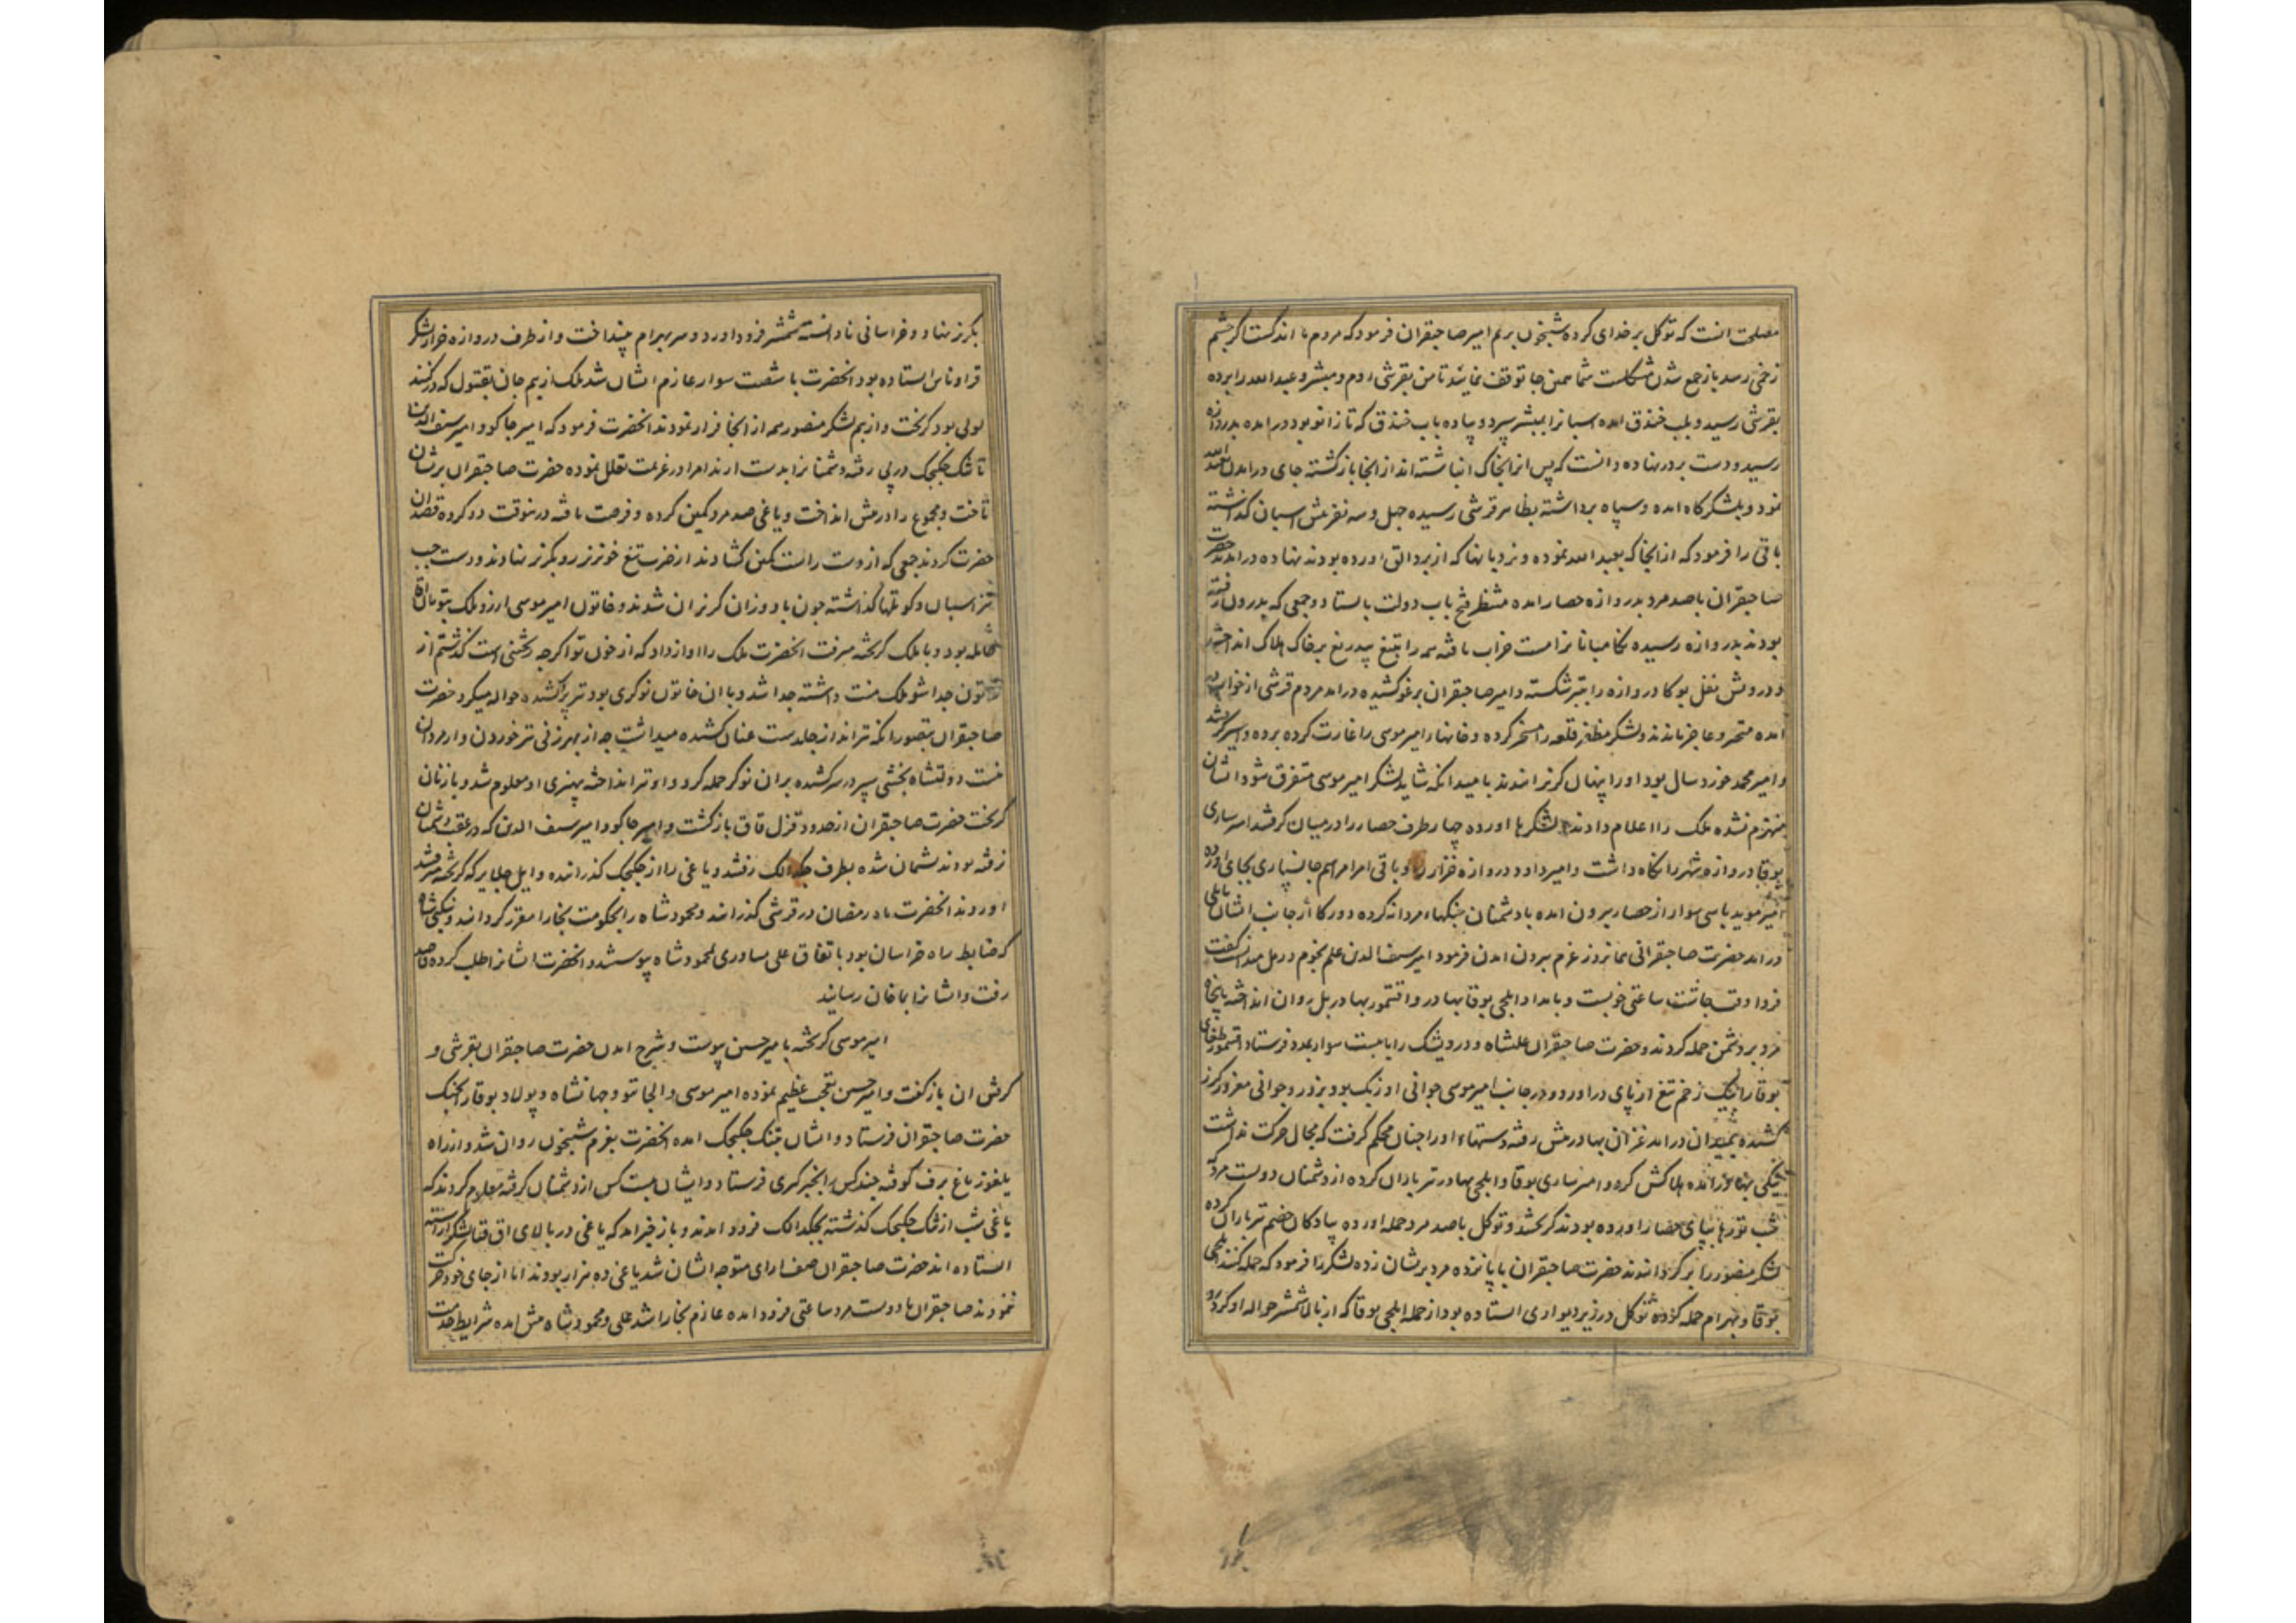 مصلحت انست که توکل بر خدای کرده شبیخون بریم امیر صاحبقران فرمود که مردم ما اندکست اگر چشم
زخمی رسد باز جمع شدن مشکلست شما همین جا توقف نمائید تا من بقرشی روم و مبشر و عبدالله را برده
بقرشی رسید و بلب خندق امده اسبانرا بمبشر سپرد و پیاده باب خندق که تا زانو بود درامده بدروازه
رسید و دست بر در نهاده دانست که پس انرا بخاک انباشته اند از انجا بازگشته جای درامدن
نمود و بلشکرگاه امده و سپاه برداشته بظاهر قرشی رسیده چهل و سه نفر پیش اسبان گذاشته
باقی را فرمود که از انجا که بعبدالله نموده و نردبانها که از بردالق اورده بودند نهاده درامدند حضرت
صاحبقران با صد مرد بدروازه حصار امده منتظر فتح باب دولت بایستاد و جمعی که بدرون رفته
بودند بدروازه رسیده نگاهبانانرا مست خراب یافته همه را بتیغ بیدریغ بر خاک هلاک انداختند
و درویش قفل بوکا دروازه را بتبر شکسته و امیر صاحبقران برغو کشیده درامد مردم قرشی از خواب
امده متحیر و عاجز ماندند و لشکر مظفر قلعه را مسخر کرده و خانهاء امیر موسی را غارت کرده برده و اسیر گرفتند
و امیر محمد خورد سال بود او را پنهان گریزانیدند بامید انکه شاید لشکر امیر موسی متفرق شود ایشان
منهزم نشده ملک را اعلام دادند لشکرها اورده چهار طرف حصار را در میان گرفتند امیر ساری
بوقا دروازه شهر را نگاه داشت و امیر داود دروازه خزار را و باقی امرا مراسم جانسپاری بجای اورده
امیر موید با سی سوار از حصار بیرون امده با دشمنان جنگهاء مردانه کرده و در کا از جانب ایشان
درامد حضرت صاحبقرانی نماز روز عزم بیرون امدن فرمود امیر سیف الدین علم نجوم در مل میدانست گفت
فردا وقت چاشت ساعتی خوبست و بامداد ایلچی بوقا بهادر و اقتمور بهادر بل روان انداخته با پنجاه
مرد بر دشمن حمله کردند و حضرت صاحبقران علیشاه و درویشک را با بیست سوار بمدد فرستاد اقتمور طغای
بوقا را بیک زخم تیغ از پای دراورد و در جانب امیر موسی جوانی اوزبک بود بزور و جوانی مغرور گرز
کشیده بمیدان درامد غزان بهادر پیش رفته دستهاء او را چنان محکم گرفت که مجال حرکت نداشت
هلاکش کرد و امیر ساری بوقا و ایلچی بهادر تیرباران کرده از دشمنان دویست مرد که
شب تورها بپای حصار اورده بودند گریختند و توکل با صد مرد حمله اورده پیادگان خصم تیرباران کرده
لشکر منصور را برگردانیدند حضرت صاحبقران با پانزده مرد بریشان زده لشکر را فرمود که حمله کنند ایلچی
بوقا و بهرام حمله کرده توکل در زیر دیواری ایستاده بود از حمله ایلچی بوقا که از بالا شمشیر حواله او کرده بود
بگریز نهاد و خراسانی نادانسته شمشیر فرود اورد و سر بهرام بینداخت و از طرف دروازه خزار لشکر
قراوناس ایستاده بود انحضرت با شصت سوار عازم ایشان شد ملک از بیم جان بقتول که در کند
لولی بود گریخت و از بیم لشکر منصور همه از انجا فرار نمودند انحضرت فرمود که امیر جاکو و امیر سیف الدین
تا تنک چکچک در پی رفته دشمنانرا بدست ارند امرا در عزیمت تعلل نموده حضرت صاحبقران بریشان
تاخت و مجموع را در پیش انداخت و یاغی صد مرد کمین کرده و فرصت یافته درینوقت دو گروه قصد ان
حضرت کردند جمعی که از دست راست کمین کشادند از ضرب تیغ خونریز رو بگریز نهادند و دست چپ
نیز اسبان و کوتلها گذاشته چون باد وزان گریزان شدند و خاتون امیر موسی ارزو ملک بتومان اقا
حامله بود و با ملک گریخته میرفت انحضرت ملک را اواز داد که از خون تو اگرچه خشتنی است گذشتم از
خاتون جدا شو ملک منت داشته جدا شد و با ان خاتون نوکری بود تیر پر کشیده حواله میکرد حضرت
صاحبقران بتصور انکه تیرانداز جلدست عنان کشیده میداشت چه از بهر زنی تیر خوردن کار مردان
نیست دولتشاه بخشی سپر در سر کشیده بران نوکر حمله کرد و او تیر انداخته بی هنری او معلوم شد و با زنان
گریخت حضرت صاحبقران از حدود قزل قاق بازگشت و امیر جاکو و امیر سیف الدین که در عقب دشمنان
رفته بودند پشیمان شده بطرف چکدالک رفتند و یاغی را از چکچک گذرانیده و ایل جلایر که گریخته میرفتند
اوردند انحضرت ماه رمضان در قرشی گذرانید و محمود شاه را بحکومت بخارا مقرر گردانید و نیکپی شاه
که ضابط راه خراسان بود باتفاق علی یساوری بمحمود شاه پیوستند و انحضرت ایشانرا طلب کرده قاصد
رفت و ایشانرا بماخان رسانید
امیر موسی گریخته بامیر حسین پیوست و شرح امدن حضرت صاحبقران بقرشی و
گرفتن ان بازگفت و امیر حسین تعجب عظیم نموده امیر موسی و الجایتو و جهانشاه و پولاد بوقا را بجنک
حضرت صاحبقران فرستاد و ایشان بتنک چکچک امده انحضرت بعزم شبیخون روان شد و از راه
یلغوز باغ برف کوفته چند کس را بخبرگیری فرستاد و ایشان بیست کس از دشمنان گرفته معلوم کردند که
یاغی شب از تنک چکچک گذشته بچکدالک فرود امدند و باز خبر امد که یاغی در بالای اق قیا لشکر اراسته
ایستاده اند حضرت صاحبقران صف ارای متوجه ایشان شد یاغی ده هزار بودند اما از جای خود حرکت
ننمودند صاحبقران با دویست مرد ساعتی فرود امده عازم بخارا شد علی و محمود شاه پیش امده شرایط خدمت